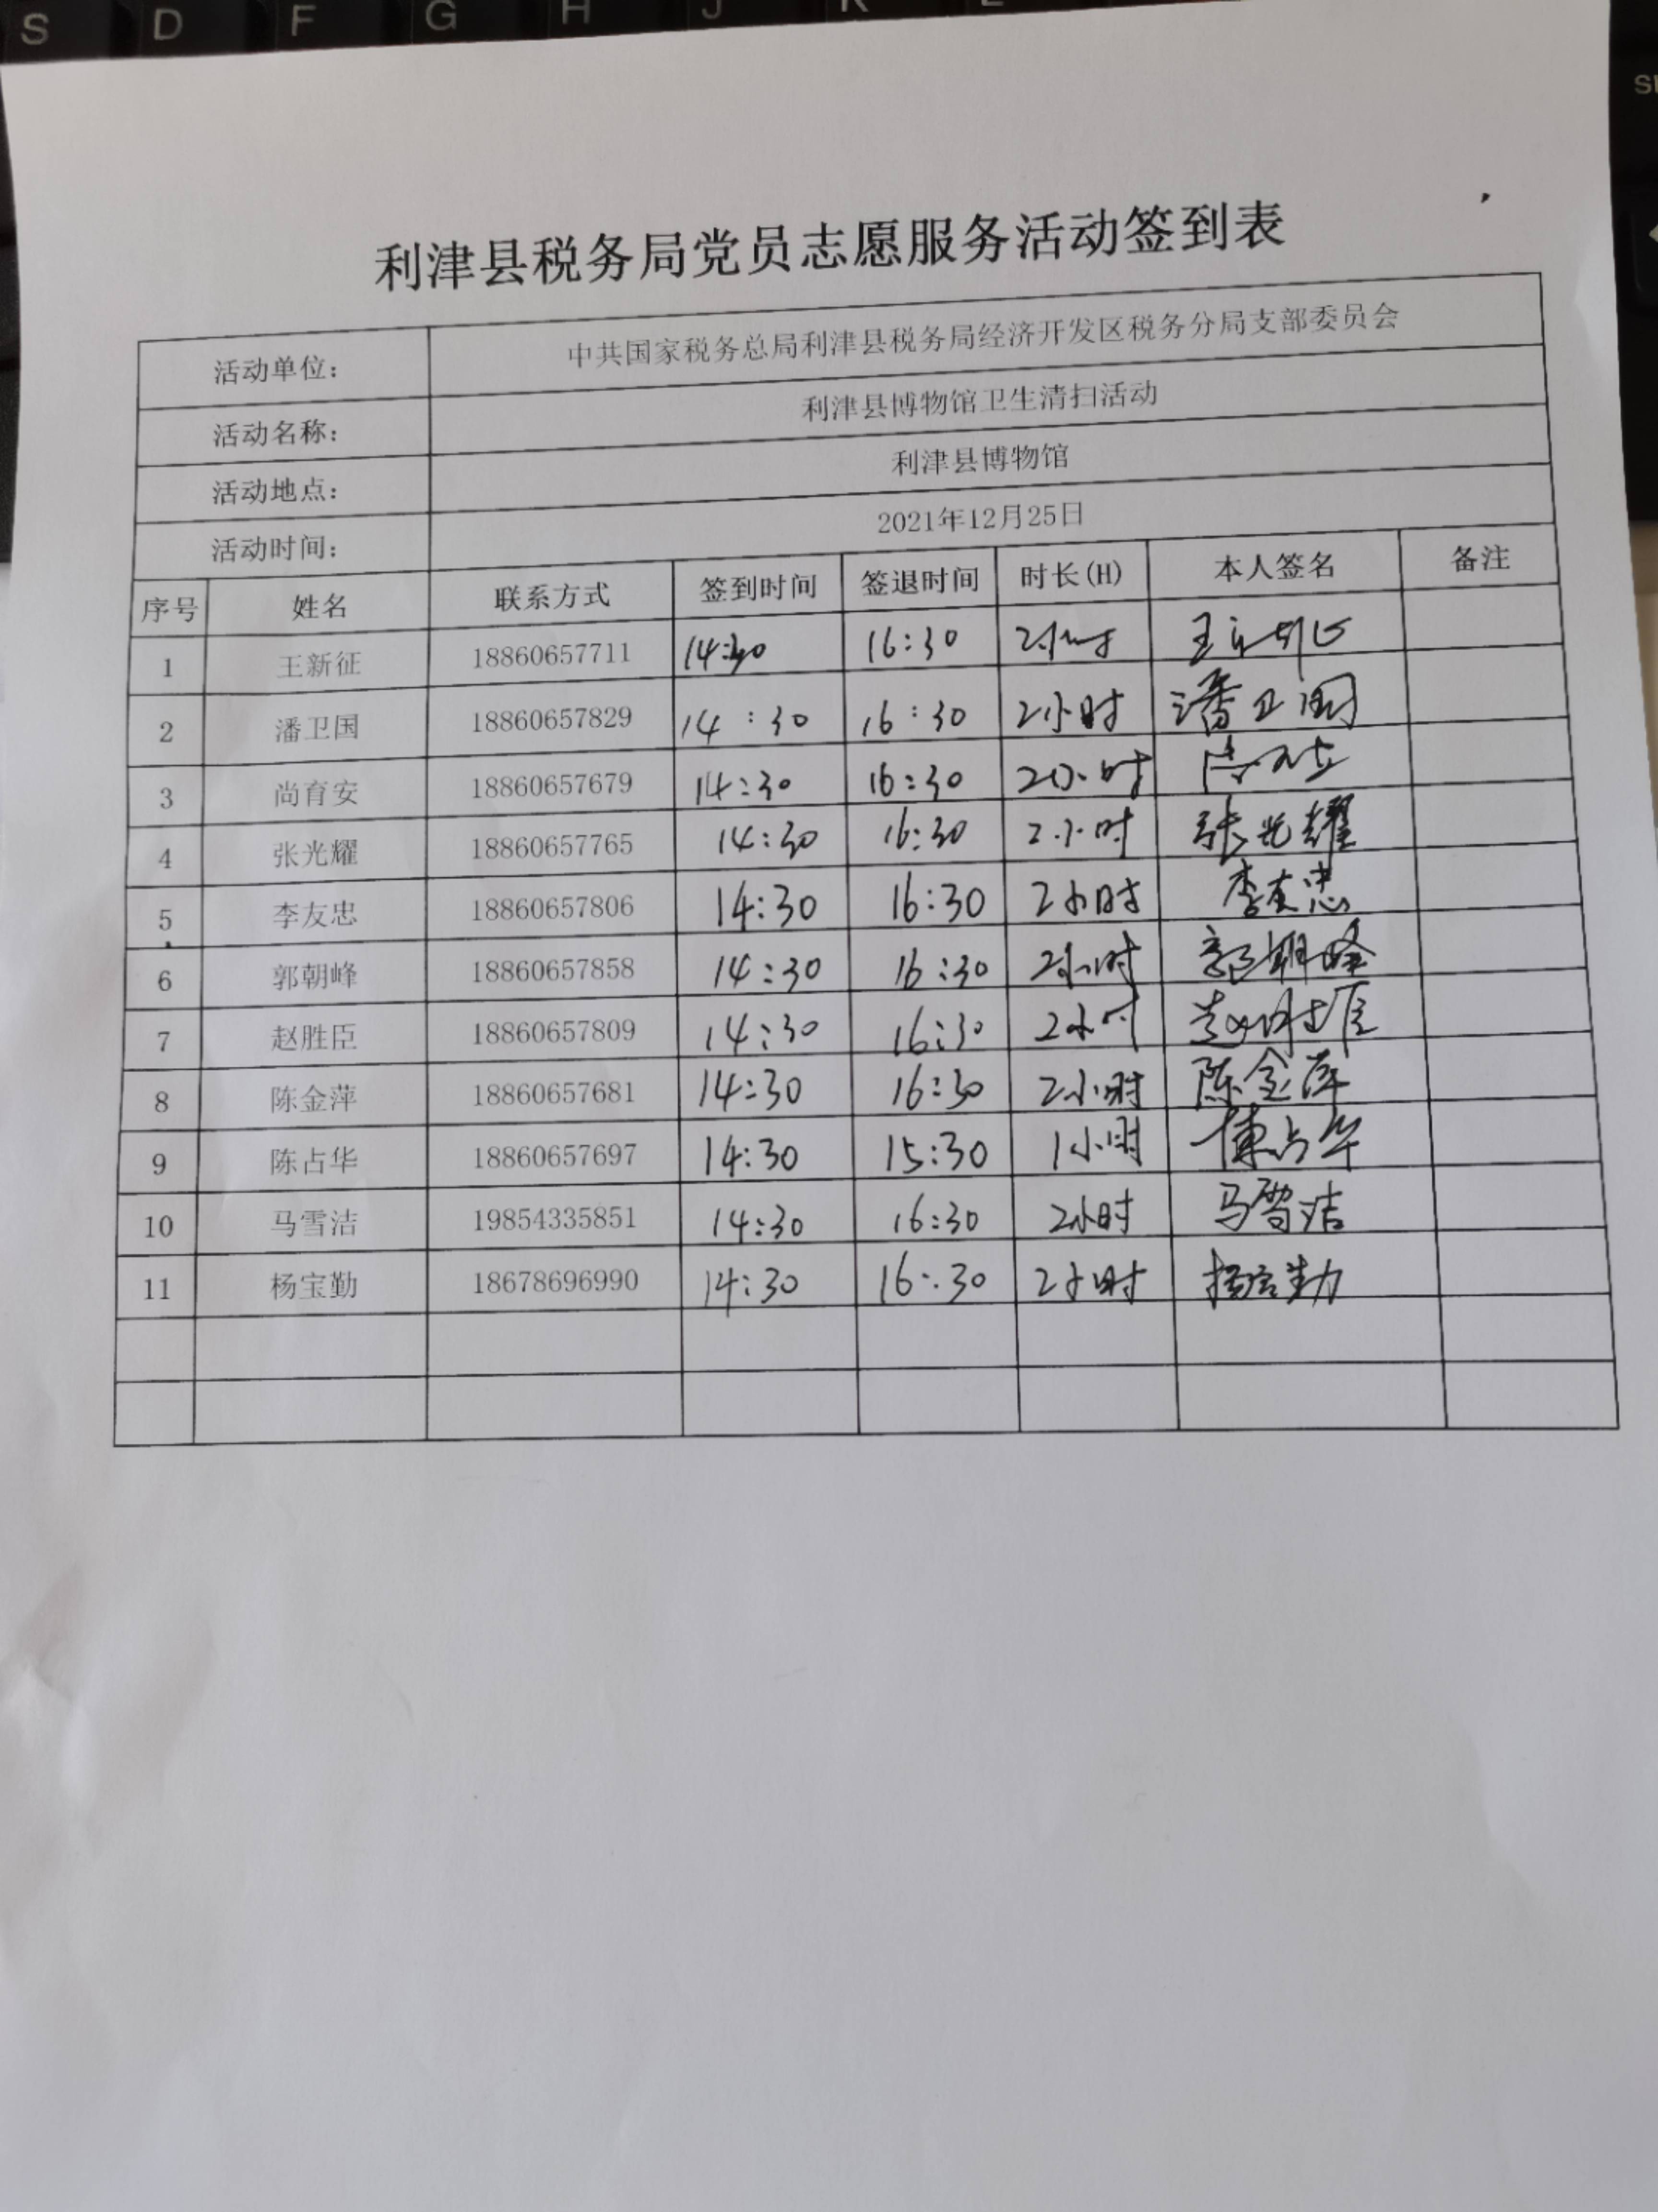 S D F G H J K L
利津县税务局党员志愿服务活动签到表
活动单位： 中共国家税务总局利津县税务局经济开发区税务分局支部委员会
活动名称： 利津县博物馆卫生清扫活动
活动地点： 利津县博物馆
活动时间： 2021年12月25日
序号 姓名 联系方式 签到时间 签退时间 时长(H) 本人签名 备注
1 王新征 18860657711 14:30 16:30 2小时 王新征
2 潘卫国 18860657829 14:30 16:30 2小时 潘卫国
3 尚育安 18860657679 14:30 16:30 2小时 尚育安
4 张光耀 18860657765 14:30 16:30 2小时 张光耀
5 李友忠 18860657806 14:30 16:30 2小时 李友忠
6 郭朝峰 18860657858 14:30 16:30 2小时 郭朝峰
7 赵胜臣 18860657809 14:30 16:30 2小时 赵胜臣
8 陈金萍 18860657681 14:30 16:30 2小时 陈金萍
9 陈占华 18860657697 14:30 15:30 1小时 陈占华
10 马雪洁 19854335851 14:30 16:30 2小时 马雪洁
11 杨宝勤 18678696990 14:30 16:30 2小时 杨宝勤